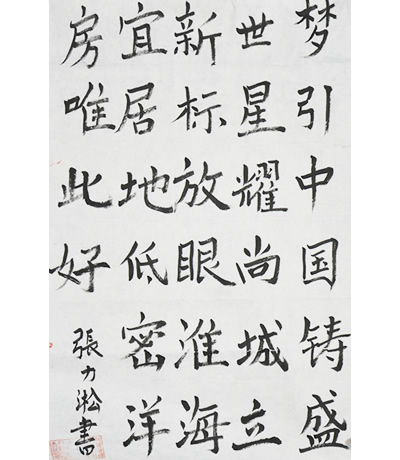 梦引中国铸盛
世星耀尚城立
新标放眼淮海
宜居地低密洋
房唯此好
張力淞書